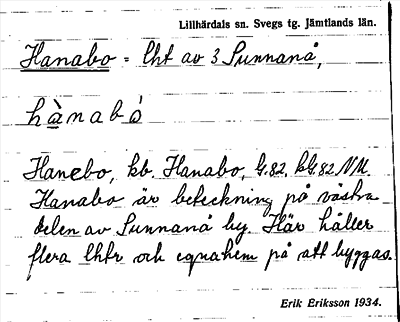 Lillhärdals sn. Svegs tg. Jämtlands län.
Hanabo = lht av 3 Sunnanå,
hànabó
Hanebo, kb. Hanabo, G.82. kG.82 NM.
Hanabo är beteckning på västra
delen av Sunnanå by. Här håller
flera lhtr och egnahem på att byggas.
Erik Eriksson 1934.